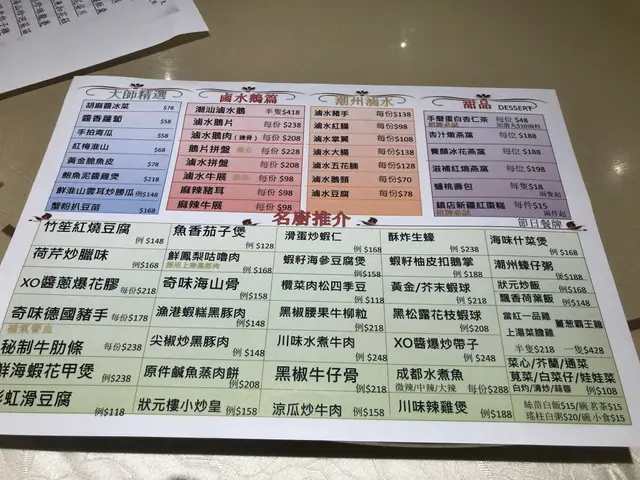 大師精選
胡麻醬冰菜 $78
醬香蘿蔔 $58
手拍青瓜 $58
紅棒淮山 $68
黃金脆魚皮 $78
鮑魚泥醬雞煲 $218
鮮淮山雲耳炒勝瓜 例$148
蟹粉扒豆苗 $168
鹵水鵝篇
潮汕滷水鵝 半隻$418
滷水鵝片 每份$238
滷水鵝肉(連骨) 每份$208
鵝片拼盤 每份$228
滷水拼盤 每份$208
滷水牛展 每份$98
麻辣豬耳 每份$98
麻辣牛展 每份$98
潮州滷水
滷水豬手 每份$138
滷水紅腸 每份$98
滷水掌翼 每份$108
滷水大腸 每份$138
滷水五花腩 每份$128
滷水鵝頸 每份$70
滷水豆腐 每份$78
甜品 DESSERT
手磨蛋白杏仁茶 每位$48
招牌必試
杏汁燉燕窩 每位$188
養顏冰花燕窩 每位$188
滋補紅燒燕窩 每位$198
蟠桃壽包 每隻$18
兩隻起
鎮店新疆紅棗糕 每件$15
招牌必試 兩件起
名廚推介
節日餐牌
竹笙紅燒豆腐 例$148
魚香茄子煲 例$128
滑蛋炒蝦仁 例$168
酥炸生蠔 例$238
海味什菜煲 例$188
荷芹炒臘味 例$168
鮮鳳梨咕嚕肉 例$168
蝦籽海參豆腐煲 例$158
蝦籽柚皮扣鵝掌 例$168
潮州蠔仔粥 例$188
XO醬蔥爆花膠 每份$218
奇味海山骨 例$158
欖菜肉松四季豆 例$118
黃金/芥末蝦球 例$238
狀元炒飯 例$168
飄香荷葉飯 例$148
奇味德國豬手 每份$178
補氣養血
漁港蝦糕黑豚肉 例$148
黑椒腰果牛柳粒 例$218
黑松露花枝蝦球 例$208
當紅一品雞 薑蔥霸王雞
上湯菜膽雞
半隻$218 一隻$428
秘制牛肋條 每份$238
尖椒炒黑豚肉 例$148
川味水煮牛肉 例$248
XO醬爆炒帶子 例$248
鮮海蝦花甲煲 例$238
原件鹹魚蒸肉餅 例$208
黑椒牛仔骨 例$218
成都水煮魚
微辣/中辣/大辣 每份$288
菜心/芥蘭/通菜
莧菜/白菜仔/娃娃菜
白灼/清炒/蒜蓉 例$108
彩虹滑豆腐 例$118
狀元樓小炒皇 例$158
涼瓜炒牛肉 例$158
川味辣雞煲 例$188
絲苗白飯$15/碗 茗茶$15/位
瑤柱白粥$20/碗 小食$15